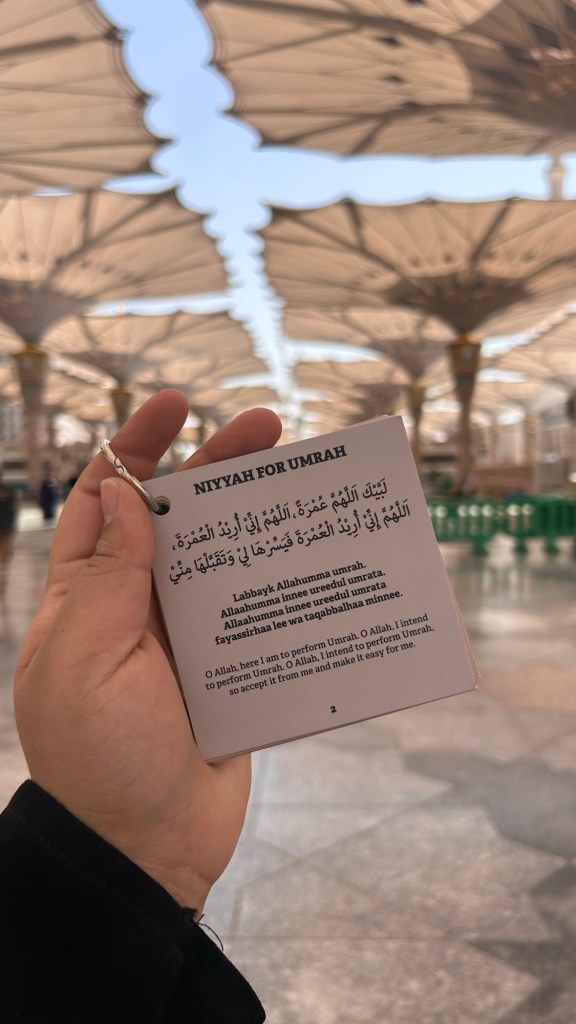 NIYYAH FOR UMRAH
لَبَّيْكَ اللَّهُمَّ عُمْرَةً، اَللَّهُمَّ إِنِّيْ أُرِيْدُ الْعُمْرَةَ،
اَللَّهُمَّ إِنِّيْ أُرِيْدُ الْعُمْرَةَ فَيَسِّرْهَا لِيْ وَتَقَبَّلْهَا مِنِّيْ
Labbayk Allahumma umrah.
Allaahumma innee ureedul umrata.
Allaahumma innee ureedul umrata
fayassirhaa lee wa taqabbalhaa minnee.
O Allah, here I am to perform Umrah. O Allah, I intend
to perform Umrah. O Allah, I intend to perform Umrah,
so accept it from me and make it easy for me.
2